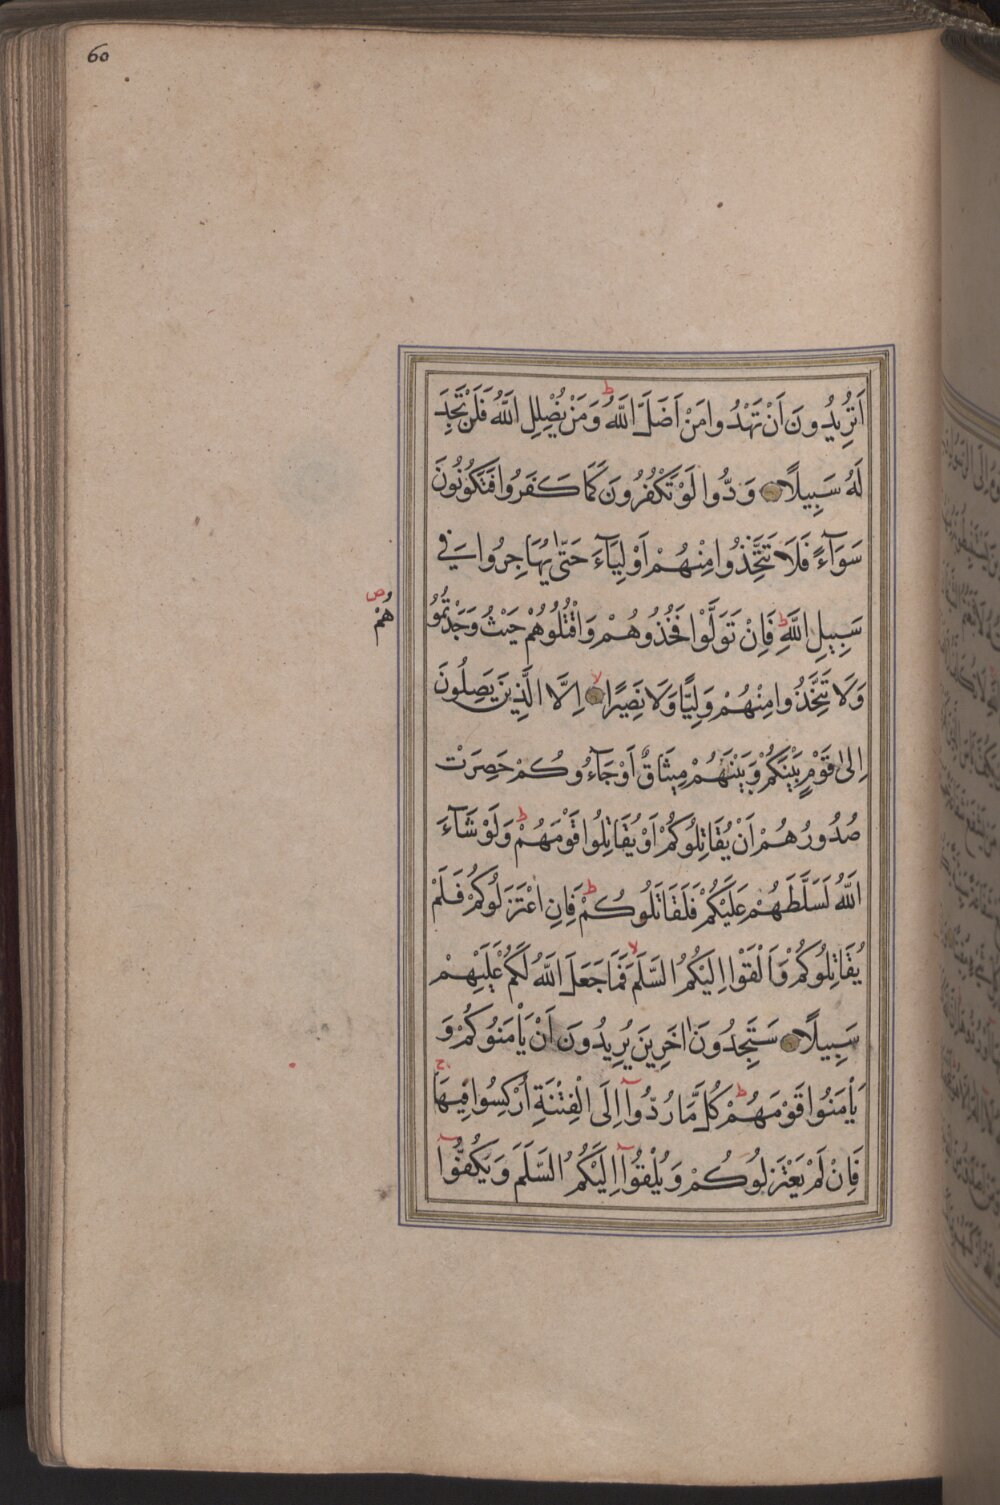 60
اَتُرِيدُونَ اَنْ تَهْدُوا مَنْ اَضَلَّ اللّٰهُ ط وَمَنْ يُضْلِلِ اللّٰهُ فَلَنْ تَجِدَ
لَهُ سَبِيلًا وَدُّوا لَوْ تَكْفُرُونَ كَمَا كَفَرُوا فَتَكُونُونَ
سَوَآءً فَلَا تَتَّخِذُوا مِنْهُمْ اَوْلِيَآءَ حَتّٰى يُهَاجِرُوا فِي
سَبِيلِ اللّٰهِ ط فَاِنْ تَوَلَّوْا فَخُذُوهُمْ وَاقْتُلُوهُمْ حَيْثُ وَجَدْتُمُو
هُمْ ص
وَلَا تَتَّخِذُوا مِنْهُمْ وَلِيًّا وَلَا نَصِيرًا لا اِلَّا الَّذِينَ يَصِلُونَ
اِلٰى قَوْمٍ بَيْنَكُمْ وَبَيْنَهُمْ مِيثَاقٌ اَوْ جَآءُوكُمْ حَصِرَتْ
صُدُورُهُمْ اَنْ يُقَاتِلُوكُمْ اَوْ يُقَاتِلُوا قَوْمَهُمْ ط وَلَوْ شَآءَ
اللّٰهُ لَسَلَّطَهُمْ عَلَيْكُمْ فَلَقَاتَلُوكُمْ ط فَاِنِ اعْتَزَلُوكُمْ فَلَمْ
يُقَاتِلُوكُمْ وَاَلْقَوْا اِلَيْكُمُ السَّلَمَ لا فَمَا جَعَلَ اللّٰهُ لَكُمْ عَلَيْهِمْ
سَبِيلًا سَتَجِدُونَ اٰخَرِينَ يُرِيدُونَ اَنْ يَاْمَنُوكُمْ وَ
يَاْمَنُوا قَوْمَهُمْ ط كُلَّمَا رُدُّوآ اِلَى الْفِتْنَةِ اُرْكِسُوا فِيهَا ج
فَاِنْ لَمْ يَعْتَزِلُوكُمْ وَيُلْقُوآ اِلَيْكُمُ السَّلَمَ وَيَكُفُّوآ